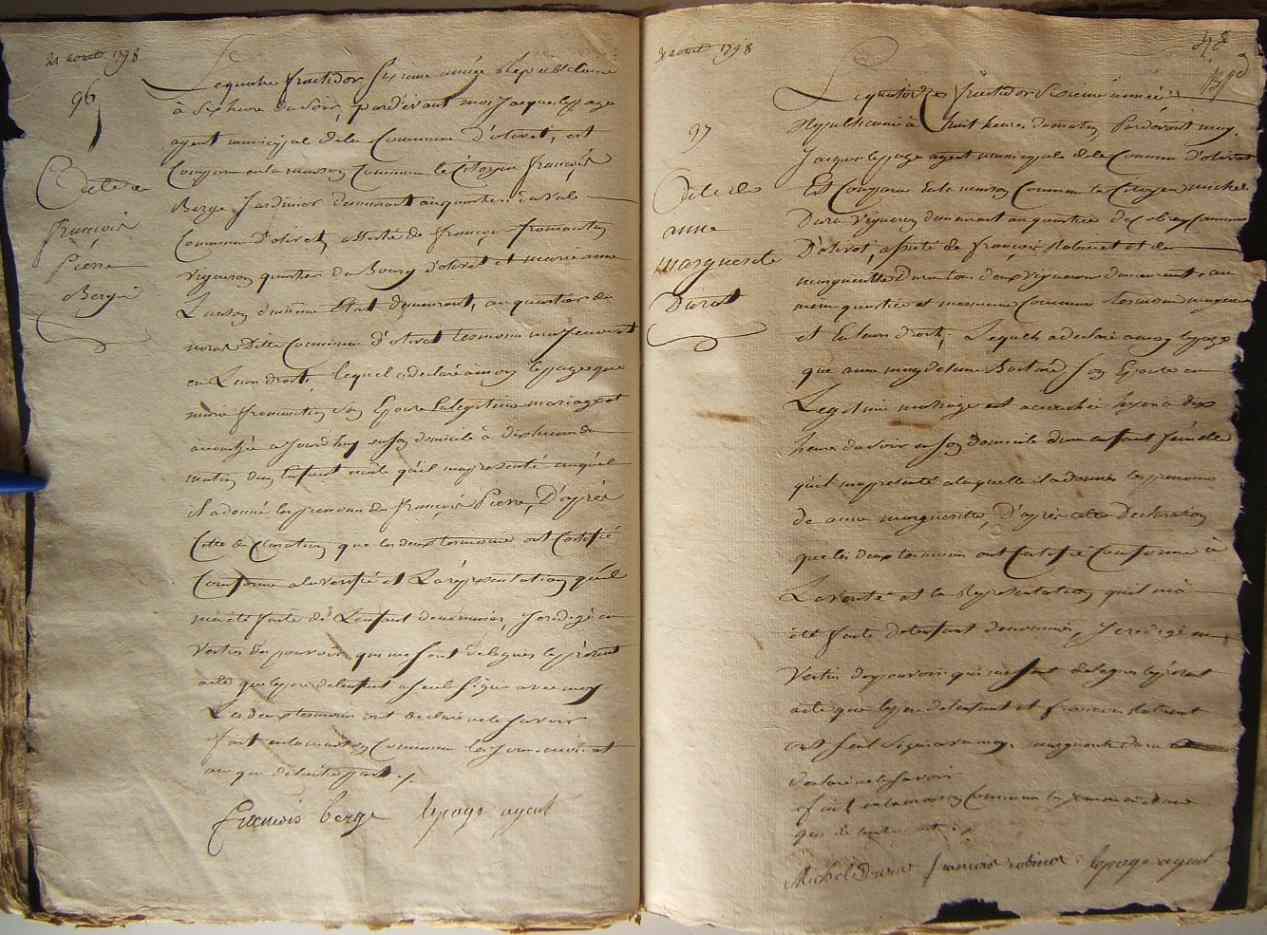 21 aout 1798
96
Acte de
françois
Pierre
Bergé
Le quatre fructidor Sixieme année Republicaine
à Six heure du Soir, pardevant moy Jacque lepage
agent municipal de la Commune D'olivet, est
Comparu en la maison Commune le Citoyen françois
Berge Jardinier demeurant au quartier
Commune D'olivet, assisté de françois fromentin
vigneron quartier du Bourg d'olivet et marie anne
demeurant, au quartier du
Ditte Commune d'olivet tesmoins majeurs
en Leur droits, lequel a declaré a moy lepage que
marie fromentin son Epouse en legitime mariage est
acouchée aujourdhuy en son domicile à dix heure du
matin d'un Enfant mâle qu'il ma presenté auquel
il a donné les prenoms de françois Pierre, D'après
Cette declaration que les deux tesmoins ont Certifié
Conforme a la verité et La representation qu'il
m'a été faite de L'enfant denommé, J'ai redigé en
vertu des pouvoirs qui me sont delegués le present
acte que le pere de lenfant a seul signé avec moy
Les deux tesmoins ont declaré ne le savoir
fait en la maison Commune les jour mois et
an que dessus
françois berge lepage agent
31 aout 1798
97
Acte de
anne
marguerite
Durat
Le quatorze fructidor Sixieme année
Republicaine à huit heures du matin Pardevant moy
Jacque lepage agent municipale de la Commune D'olivet
Est Comparu en la maison Commune le Citoyen michel
vigneron demeurant au quartier Commune
D'olivet, assisté de françois Robinet et de
marguerite tous deux vignerons demeurant au
meme quartier et mesme Commune tesmoins majeurs
et En leurs droits, Lequel a declaré a moy lepage
que anne magdelaine son Epouse en
Legitime mariage est acouchée hyer a dix
heures du soir en son domicile d'un enfant femelle
qu'il ma presenté a laquelle il a donné les prenoms
de anne marguerite, D'après cette Declaration
que les deux tesmoins ont Certifié Conforme à
La verité et la Representation, quil m'a
été faite de lenfant denommé, J'ai redigé en
Vertu des pouvoirs qui me sont delegués le present
acte que le pere de lenfant et françois Robinet
ont seul signé avec moy, marguerite
declaré ne le savoir
fait en la maison Commune les jour mois et an
que dessus
Michel françois robinet lepage agent